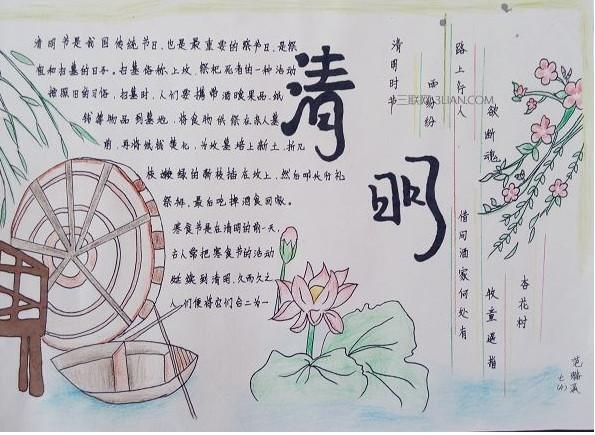 清明节是我国传统节日,也是最重要的祭节日,是祭
祖和扫墓的日子。扫墓俗称上坟,祭祀死者的一种活动
按照旧的习俗,扫墓时,人们要携带酒食果品,纸
钱等物品到墓地,将食物供祭在亲人墓
前,再将纸钱焚化,为坟墓培上新土,折几
枝嫩绿的新枝插在坟上,然后叩头行礼
祭拜,最后吃掉酒食回家。
寒食节是在清明的前一天,
古人常把寒食节的活动
延续到清明,久而久之,
人们便将它们合二为一
清明
清明时节
雨纷纷
路上行人
欲断魂
借问酒家何处有
牧童遥指
杏花村
七(1)
三联网3LIAN.COM